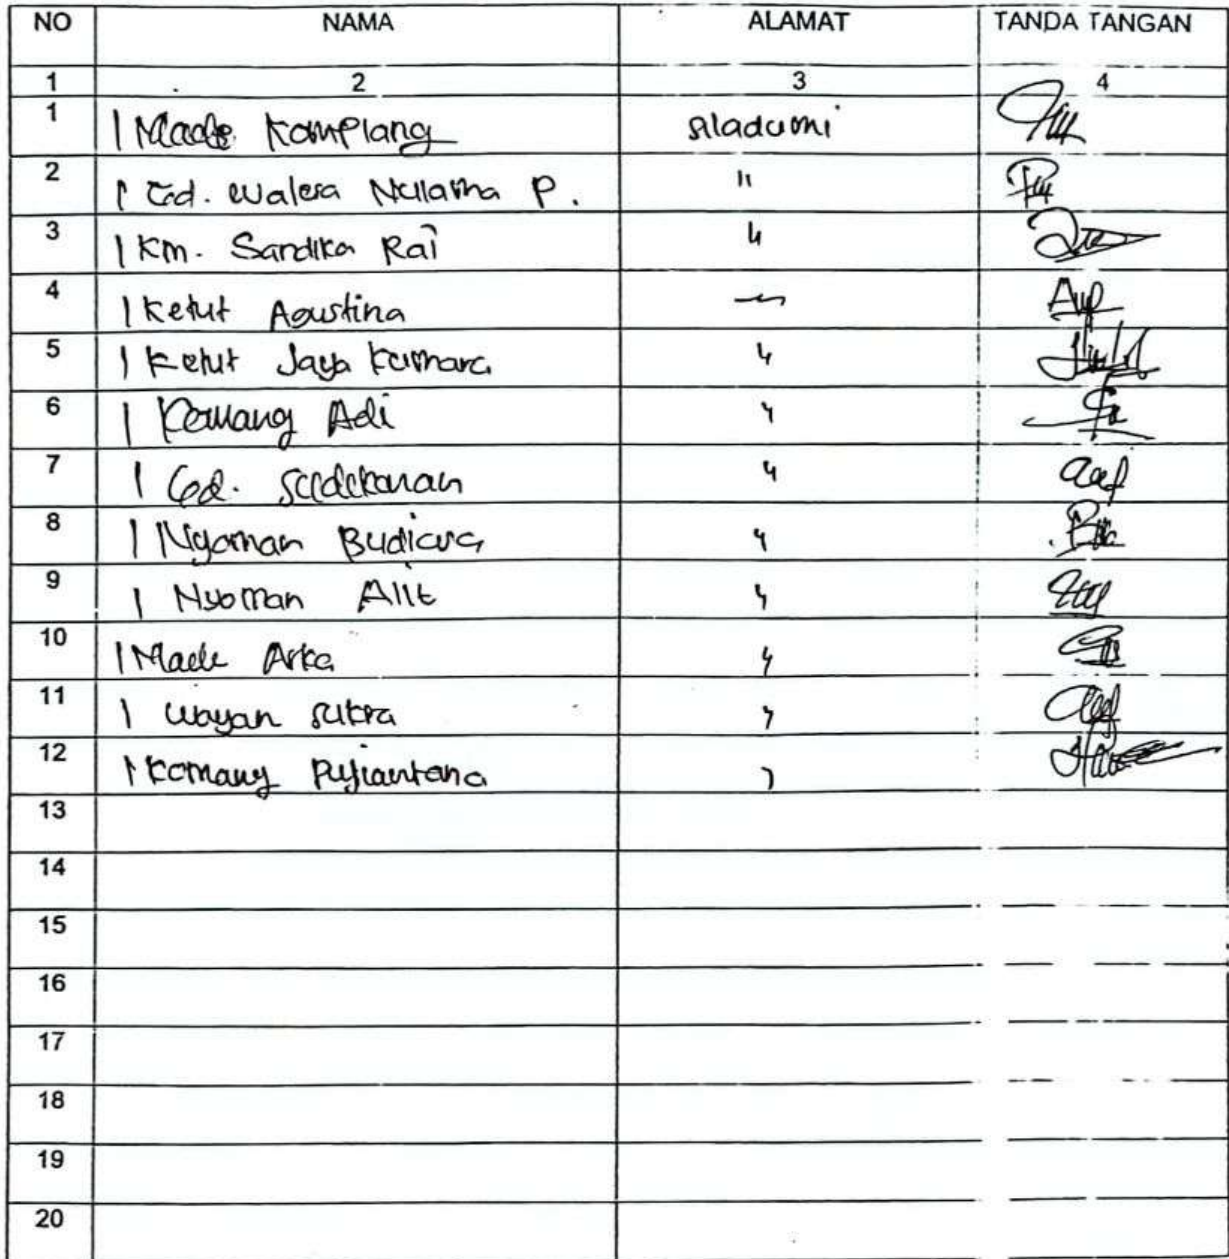 NO NAMA ALAMAT TANDA TANGAN
1 2 3 4
1 I Made Kamplang Siladumi
2 I Gd. Walesa P. "
3 I Km. Sandika Rai "
4 I Ketut Agustina
5 I Ketut Jaya Kumara "
6 I Komang Adi "
7 I Gd. "
8 I Nyoman Budiara "
9 I Nyoman Alit "
10 I Made Arka "
11 I Wayan Sukra "
12 I Komang Pujiantana "
13
14
15
16
17
18
19
20